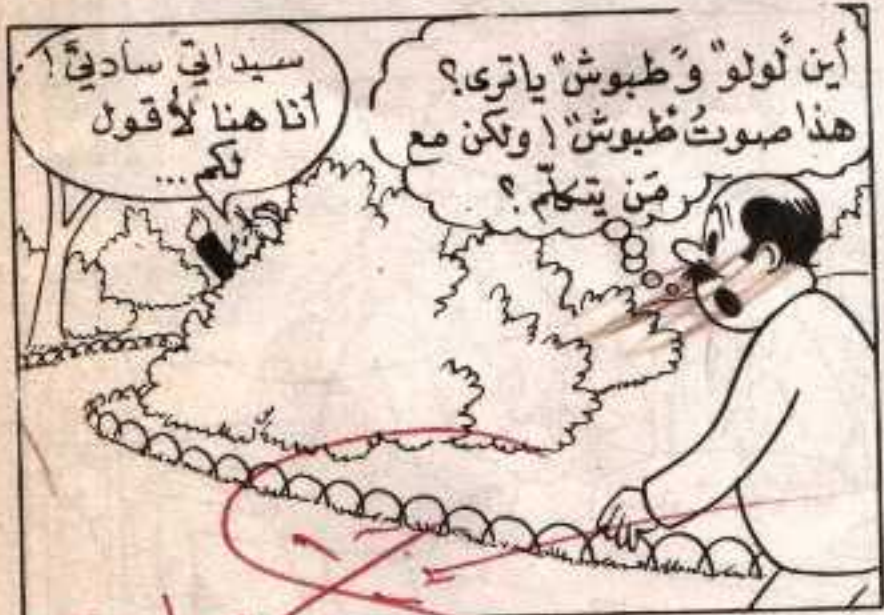 أين "لولو" و"طبوش" ياترى؟
هذا صوتُ "طبوش"! ولكن مع
مَن يتكلّم؟
سيداتي سادتي!
أنا هنا لأقول
لكم...